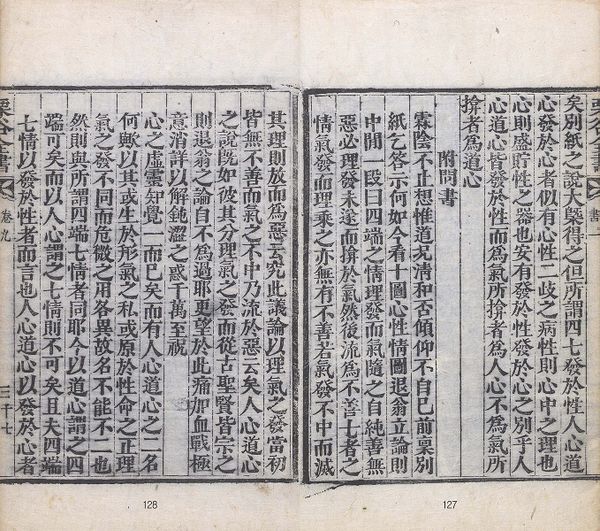 矣別紙之說大槩得之但所謂四七發於性人心道
心發於心者似有心性二歧之病性則心中之理也
心則盛貯性之器也安有發於性發於心之別乎人
心道心皆發於性而爲氣所揜者爲人心不爲氣所
揜者爲道心
附問書
霖陰不止想惟道况淸和否傾仰不自已前稟別
紙乞答示何如今看十圖心性情圖退翁立論則
中間一段曰四端之情理發而氣隨之自純善無
惡必理發未遂而揜於氣然後流爲不善七者之
情氣發而理乘之亦無有不善若氣發不中而滅
127
其理則放而爲惡云究此議論以理氣之發當初
皆無不善而氣之不中乃流於惡云矣人心道心
之說旣如彼其分理氣之發而從古聖賢皆宗之
則退翁之論自不爲過耶更望於此痛加血戰極
意消詳以解鈍澀之惑千萬至祝
心之虛靈知覺一而已矣而有人心道心之二名
何歟以其或生於形氣之私或原於性命之正理
氣之發不同而危微之用各異故名不能不二也
然則與所謂四端七情者同耶今以道心謂之四
端可矣而以人心謂之七情則不可矣且夫四端
七情以發於性者而言也人心道心以發於心者
栗谷全書 卷九 三十七
128